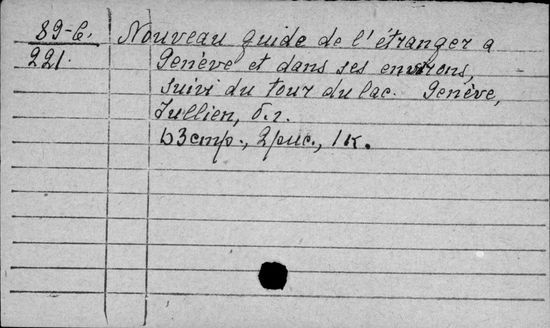 89-6. Nouveau guide de l'étranger a
221. Genève et dans ses environs,
suivi du tour du lac. Genève,
Jullien, б.г.
63 стр., 2 рис., 1 к.